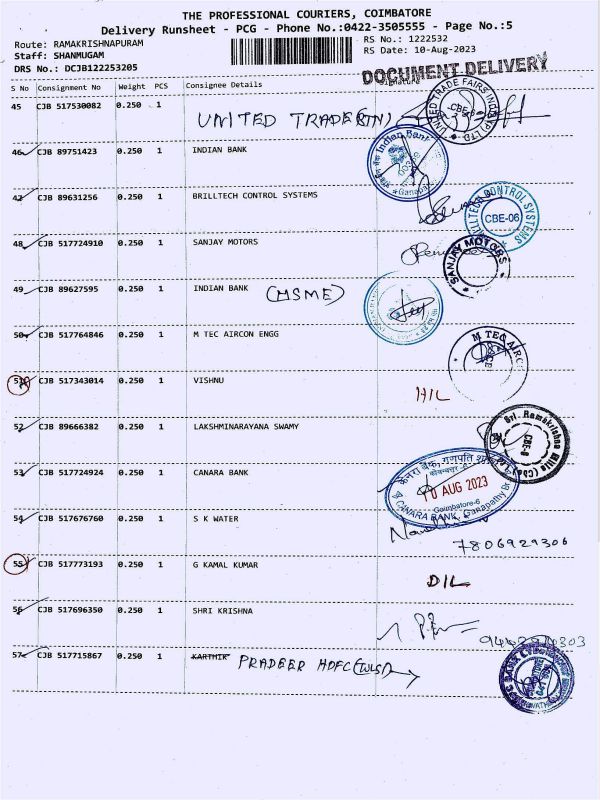 THE PROFESSIONAL COURIERS, COIMBATORE
Delivery Runsheet - PCG - Phone No.:0422-3505555 - Page No.:5
Route: RAMAKRISHNAPURAM
RS No.: 1222532
Staff: SHANMUGAM
RS Date: 10-Aug-2023
DRS No.: DCJB122253205
DOCUMENT DELIVERY
S No Consignment No Weight PCS Consignee Details Signature
45 CJB 517530082 0.250 1 UNITED TRADE
UNITED TRADE FAIRS
CBE-6
46 CJB 89751423 0.250 1 INDIAN BANK
Indian Bank
Ganapathy
47 CJB 89631256 0.250 1 BRILLTECH CONTROL SYSTEMS
BRILLTECH CONTROL SYSTEMS
CBE-06
48 CJB 517724910 0.250 1 SANJAY MOTORS
SANJAY MOTORS
49 CJB 89627595 0.250 1 INDIAN BANK (MSME)
50 CJB 517764846 0.250 1 M TEC AIRCON ENGG
M TEC AIRC
51 CJB 517343014 0.250 1 VISHNU
52 CJB 89666382 0.250 1 LAKSHMINARAYANA SWAMY
Sri. Ramakrishna Mills (Cbe)
53 CJB 517724924 0.250 1 CANARA BANK
केनरा बैंक, गणपति
10 AUG 2023
Coimbatore-6
CANARA BANK, Ganapathy Br
54 CJB 517676760 0.250 1 S K WATER
7806929306
55 CJB 517773193 0.250 1 G KAMAL KUMAR
DIL
56 CJB 517696350 0.250 1 SHRI KRISHNA
57 CJB 517715867 0.250 1 KARTHIK PRADEEP HDFC